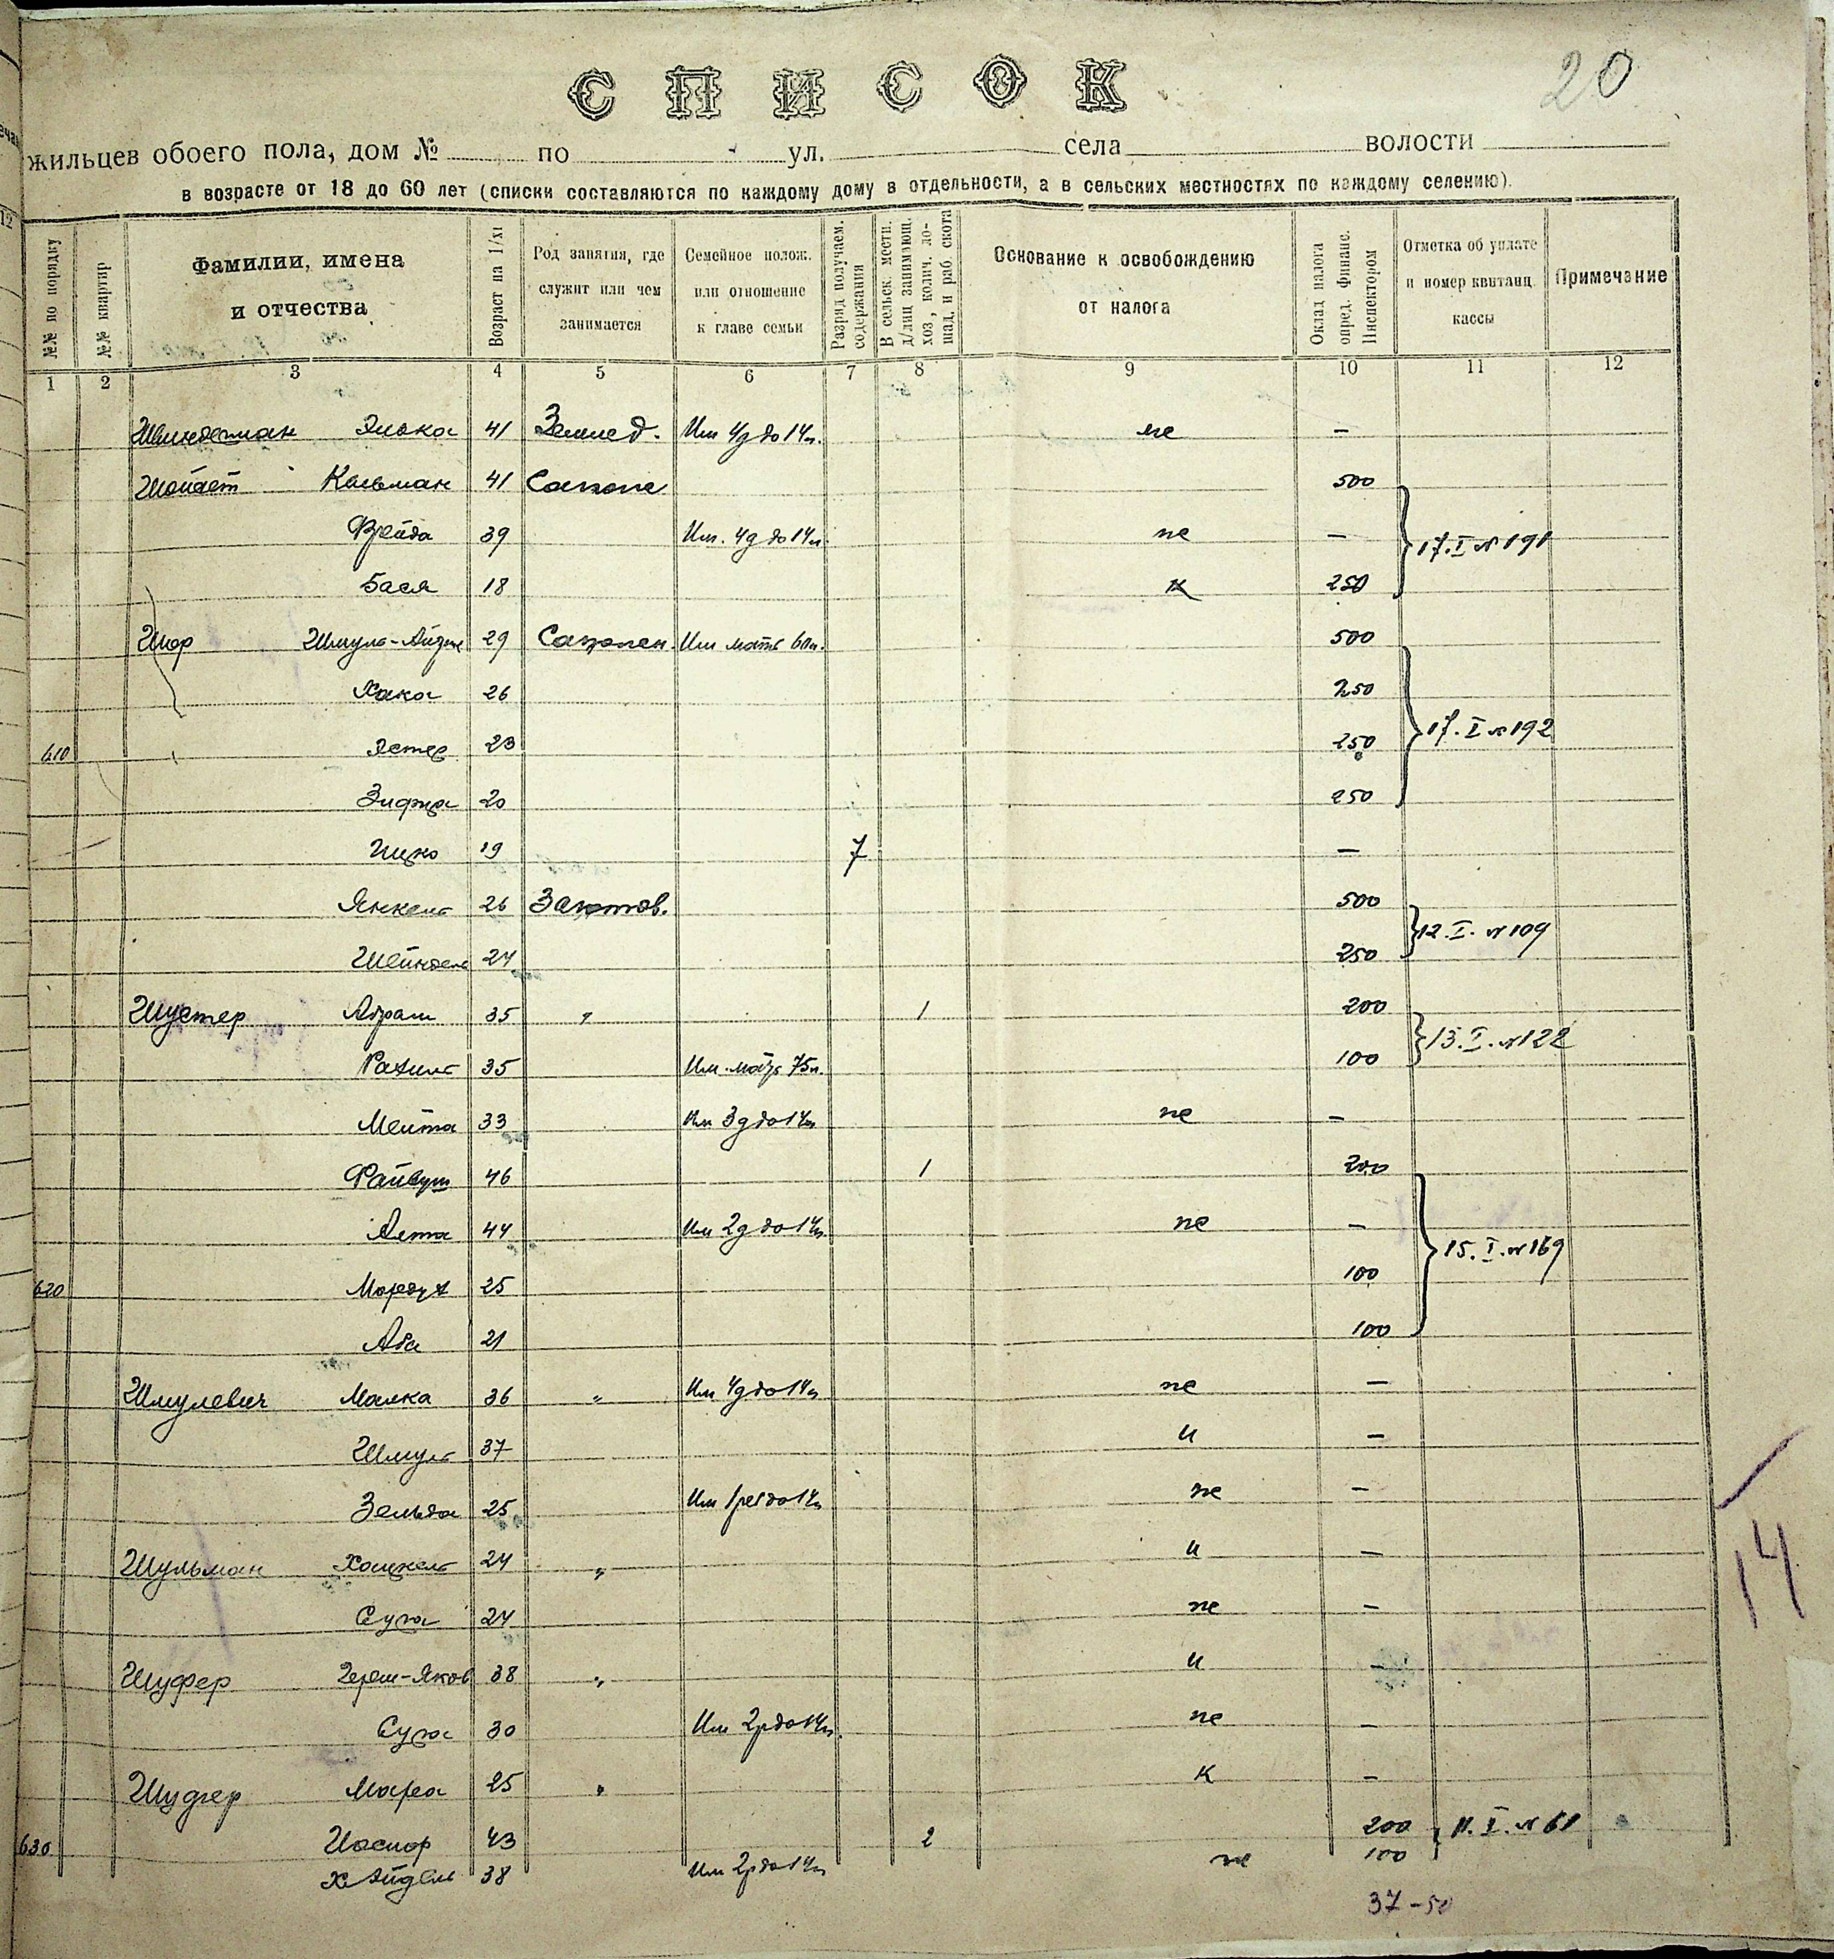 20
СПИСОК
жильцев обоего пола, дом № по ул. села волости
в возрасте от 18 до 60 лет (списки составляются по каждому дому в отдельности, а в сельских местностях по каждому селению).
№№ по порядку
№№ квартир
Фамилии, имена и отчества
Возраст на 1/XI
Род занятия, где служит или чем занимается
Семейное полож. или отношение к главе семьи
Разряд получаем. содержания
В сельск. местн. д/лиц занимающ. хоз., колич. лошад. и раб. скота
Основание к освобождению от налога
Оклад налога опред. финанс. Инспектором
Отметка об уплате и номер квитанц. кассы
Примечание
1 2 3 4 5 6 7 8 9 10 11 12
41 Землед. Им 4д до 14л. не —
Кальман 41 Сапож 500
Фрейда 39 Им. 4д до 14л. не — 17.I № 191
Бася 18 К 250
Шор 29 Сапожн. Им мать 60л. 500
Хака 26 250
610 Эстер 23 250 17.I № 192
20 250
19 7 —
Янкель 26 Заготов. 500
Шейндель 24 250 12.I. № 109
Шустер Абрам 35 " 1 200
Рахиль 35 Им. мать 75л. 100 13.I. № 122
Мейта 33 Им 3д до 14л не —
Файвуш 46 1 200
44 Им 2д до 14л не — 15.I. № 169
620 Мордух 25 100
Аба 21 100
Шмулевич Малка 36 " Им 4д до 14л не —
Шмуль 37 и —
Зельда 25 Им 1реб до 14л не —
Шульман Хацкель 24 " и —
Сура 24 не —
Шуфер Герш-Яков 38 " и —
Сура 30 Им 2р до 14л. не —
25 " К —
630 43 2 200 11.I. № 61
38 Им 2р до 14л не 100
37-50
14